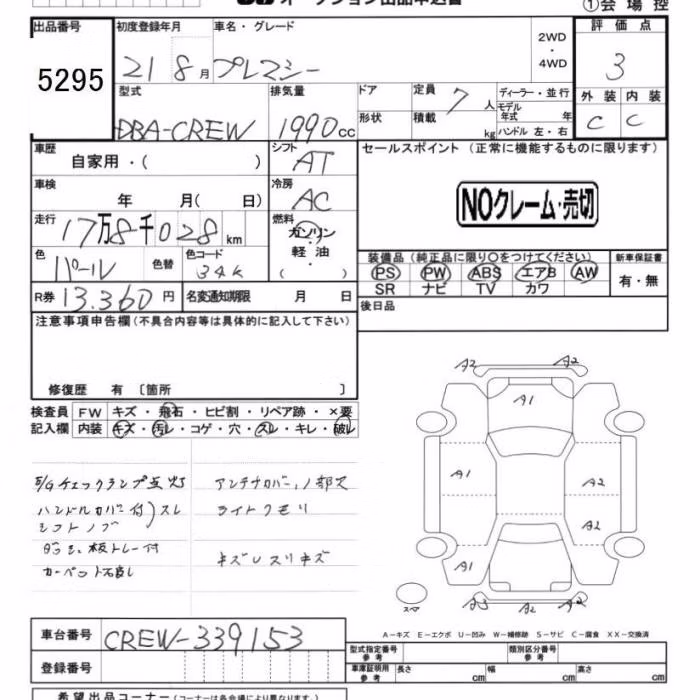 オークション出品申込書
①会場控
出品番号 初度登録年月 車名・グレード 2WD・4WD 評価点
5295 21 8月 プレマシー 3
型式 排気量 ドア 定員 7人 ディーラー・並行 外装 内装
DBA-CREW 1990cc 形状 積載 kg モデル年式 年 C C
ハンドル 左・右
車歴 シフト セールスポイント (正常に機能するものに限ります)
自家用・( ) AT
車検 冷房 NOクレーム・売切
年 月( 日) AC
走行 燃料
17万8千028km ガソリン
軽油
( )
色 色替 色コード 装備品 (純正品に限り○をつけてください) 新車保証書
パール 34K PS PW ABS エアB AW 有・無
SR ナビ TV カワ
R券 13.360円 名変通知期限 月 日 後日品
注意事項申告欄(不具合内容等は具体的に記入して下さい)
修復歴 有 〔箇所 〕
検査員 FW キズ・飛石・ヒビ割・リペア跡・×要
記入欄 内装 キズ・汚レ・コゲ・穴・スレ・キレ・破レ
E/Gチェックランプ点灯 アンテナカバー
ハンドルカバー付)スレ ライトクモリ
シフトノブ
板トレー付 キズUスリキズ
カーペット
A2 A2
A1
A1 A1
A2
A1 A2
スペア A3 A2 A2
A-キズ E-エクボ U-凹み W-補修跡 S-サビ C-腐食 XX-交換済
車台番号 CREW-339153 型式指定番号 参考 類別区分番号 参考
登録番号 車庫証明用 参考 長さ cm 幅 cm 高さ cm
希望出品コーナー(コーナーは各会場により異なります)